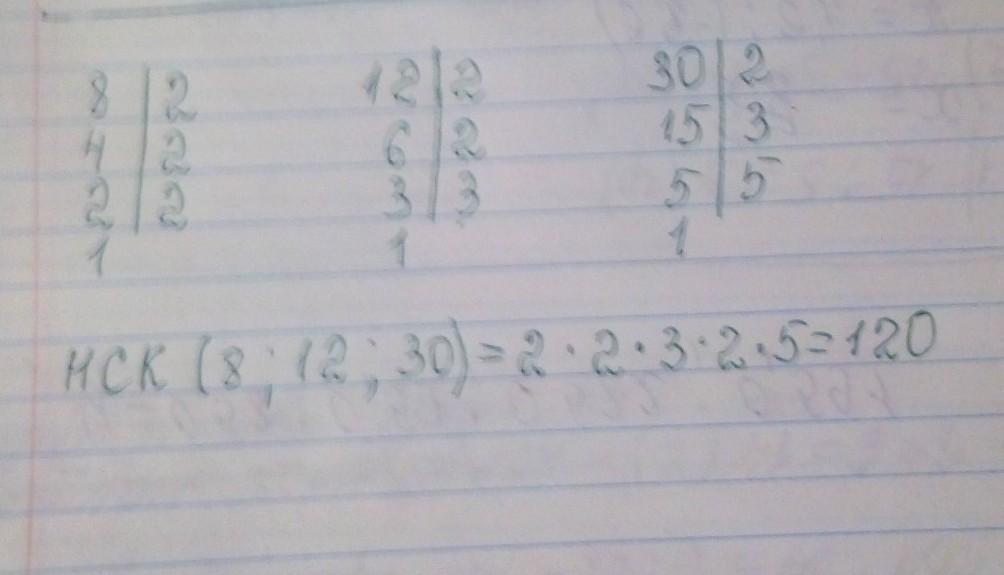 8 | 2 12 | 2 30 | 2
4 | 2 6 | 2 15 | 3
2 | 2 3 | 3 5 | 5
1 1 1
НСК (8; 12; 30) = 2 · 2 · 3 · 2 · 5 = 120